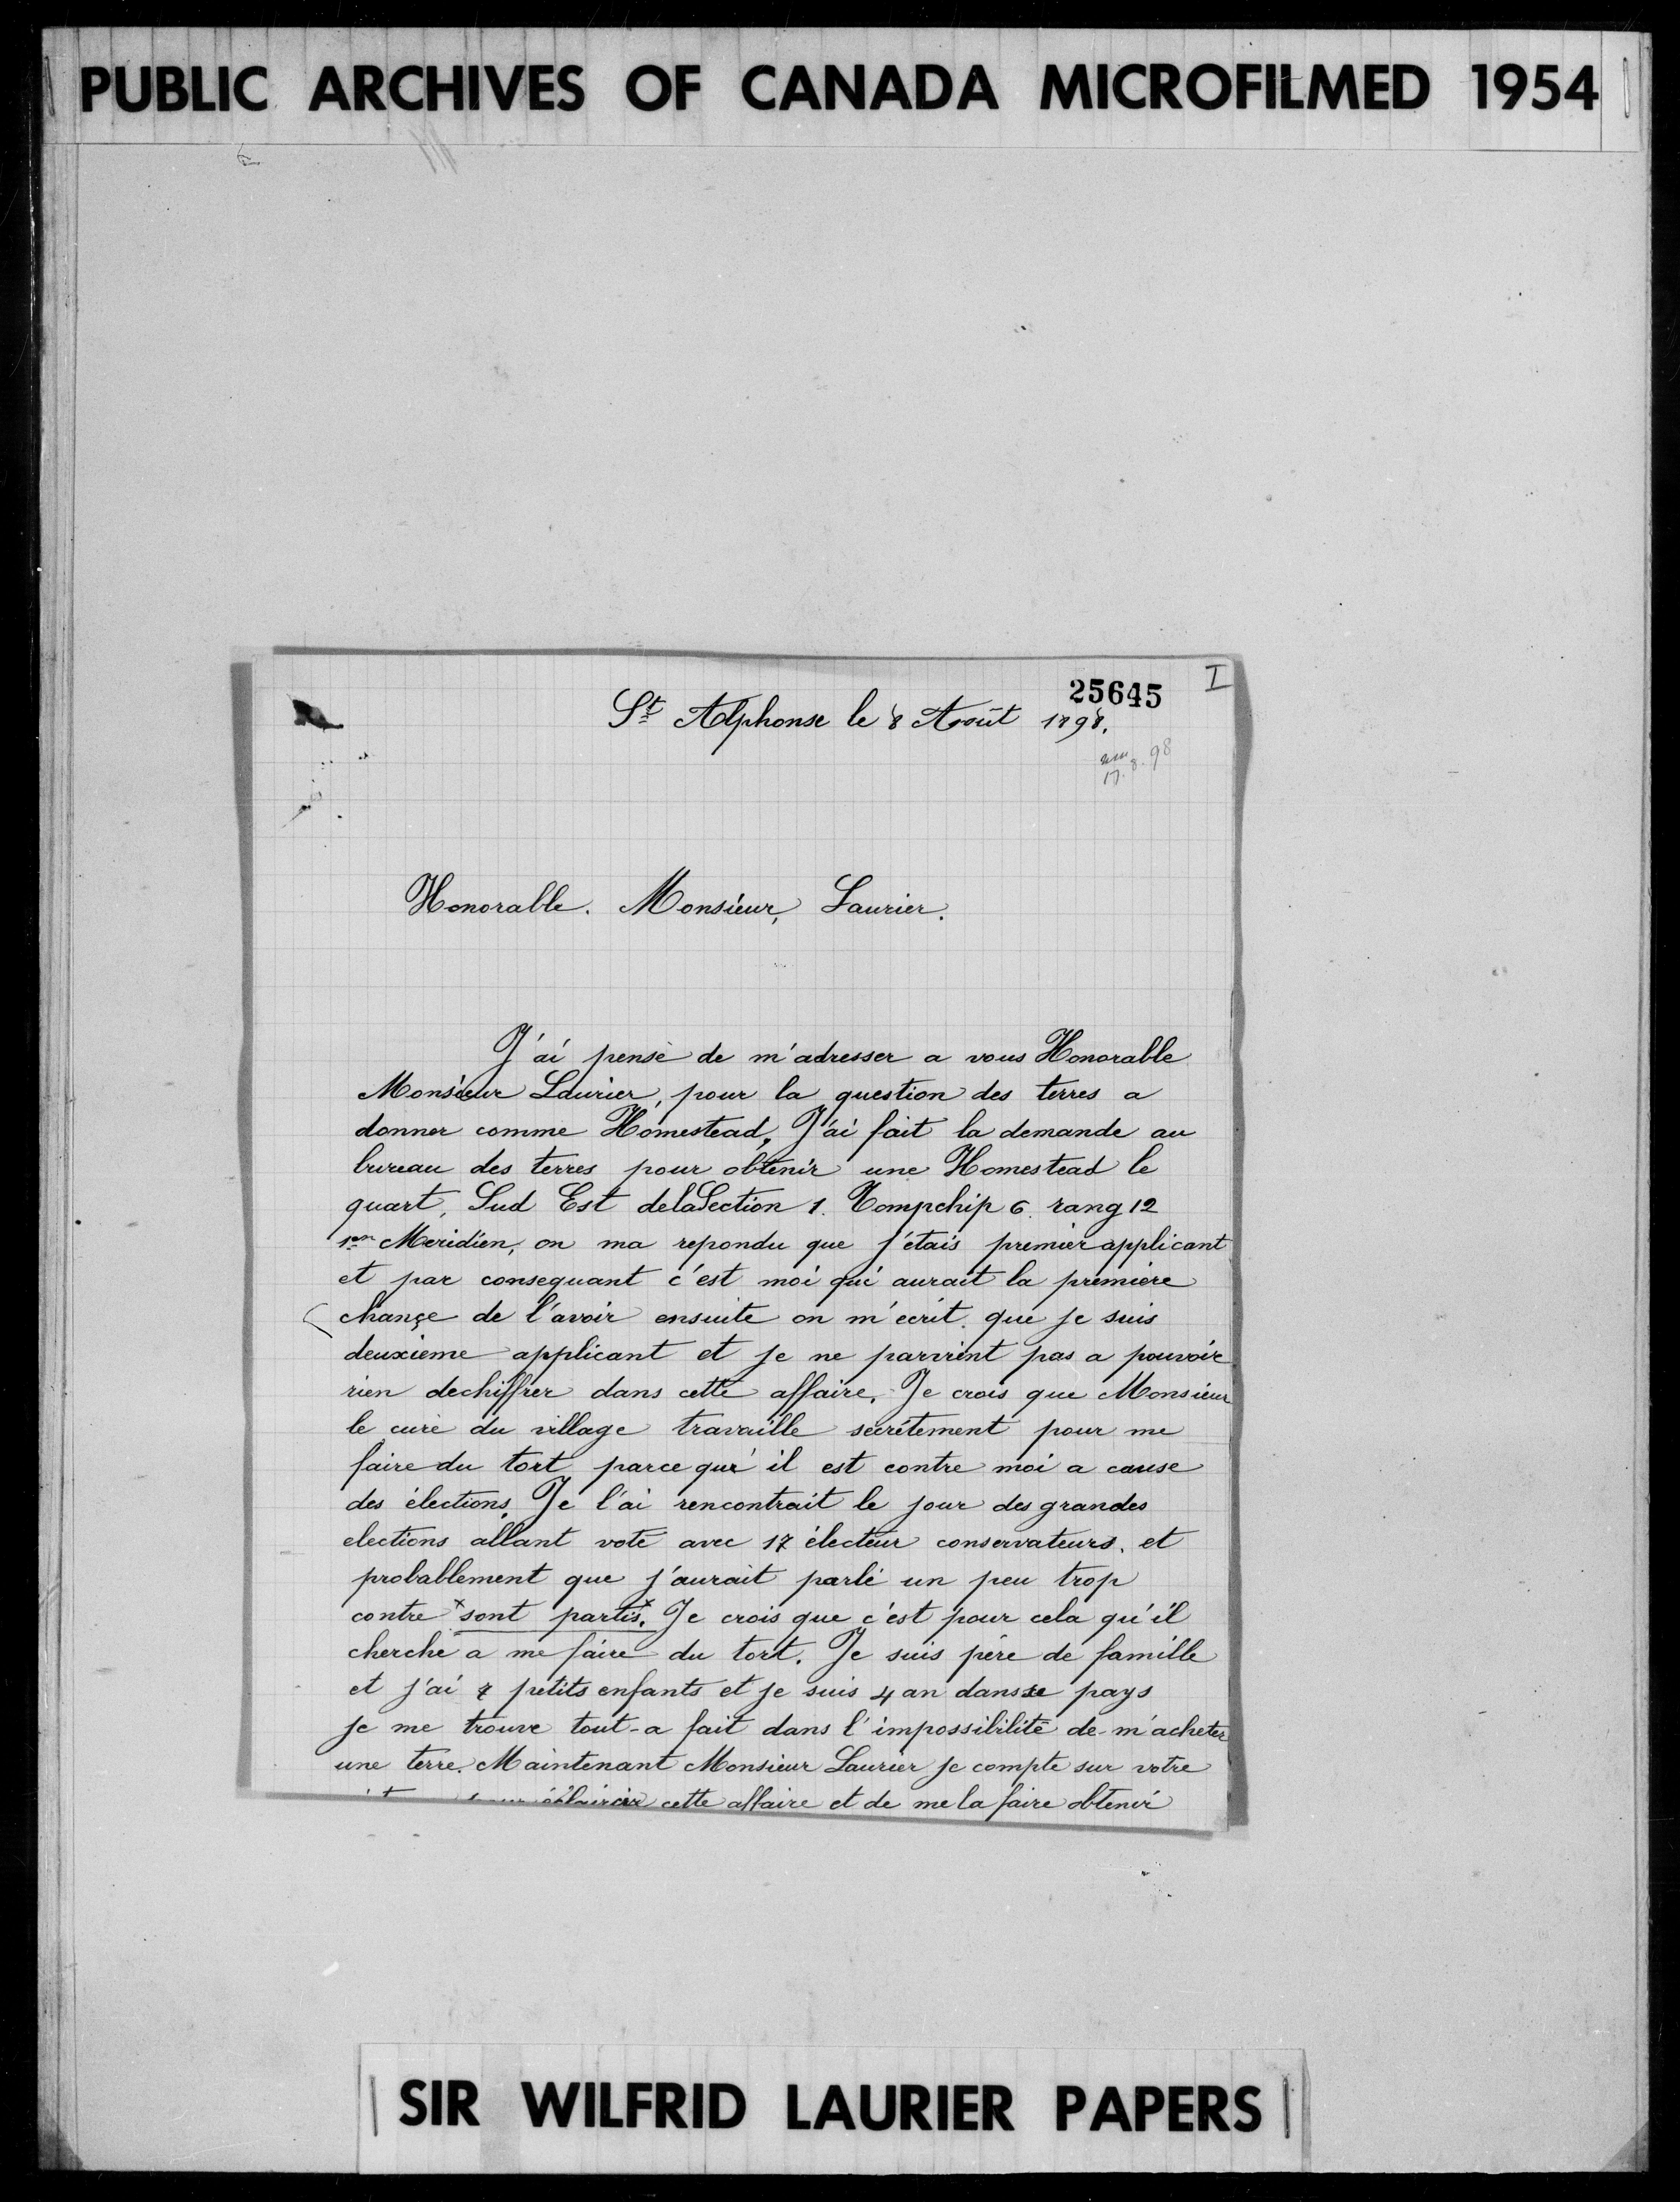 PUBLIC ARCHIVES OF CANADA MICROFILMED 1954
25645 I
St Alphonse le 8 Août 1898.
17.8.98
Honorable. Monsieur, Laurier.
J'ai pensé de m'adresser a vous Honorable
Monsieur Laurier, pour la question des terres a
donner comme Homestead. J'ai fait la demande au
bureau des terres pour obtenir une Homestead le
quart, Sud Est de la Section 1. Tompchip 6. rang 12
1er Meridien, on ma repondu que j'étais premier applicant
et par consequant c'est moi qui aurait la première
chançe de l'avoir ensuite on m'écrit. que je suis
deuxieme applicant et je ne parvient pas a pouvoir
rien dechiffrer dans cette affaire. Je crois que Monsieur
le curé du village travaille secrétement pour me
faire du tort parce qui il est contre moi a cause
des élections. Je l'ai rencontrait le jour des grandes
elections allant voté avec 17 électeur conservateurs. et
probablement que j'aurait parlé un peu trop
contre x sont partis. x Je crois que c'est pour cela qu'il
cherche a me faire du tort. Je suis père de famille
et j'ai 7 petits enfants et je suis 4 an dans ce pays
je me trouve tout-a fait dans l'impossibilité de m'acheter
une terre. Maintenant Monsieur Laurier je compte sur votre
éclaircir cette affaire et de me la faire obtenir
SIR WILFRID LAURIER PAPERS